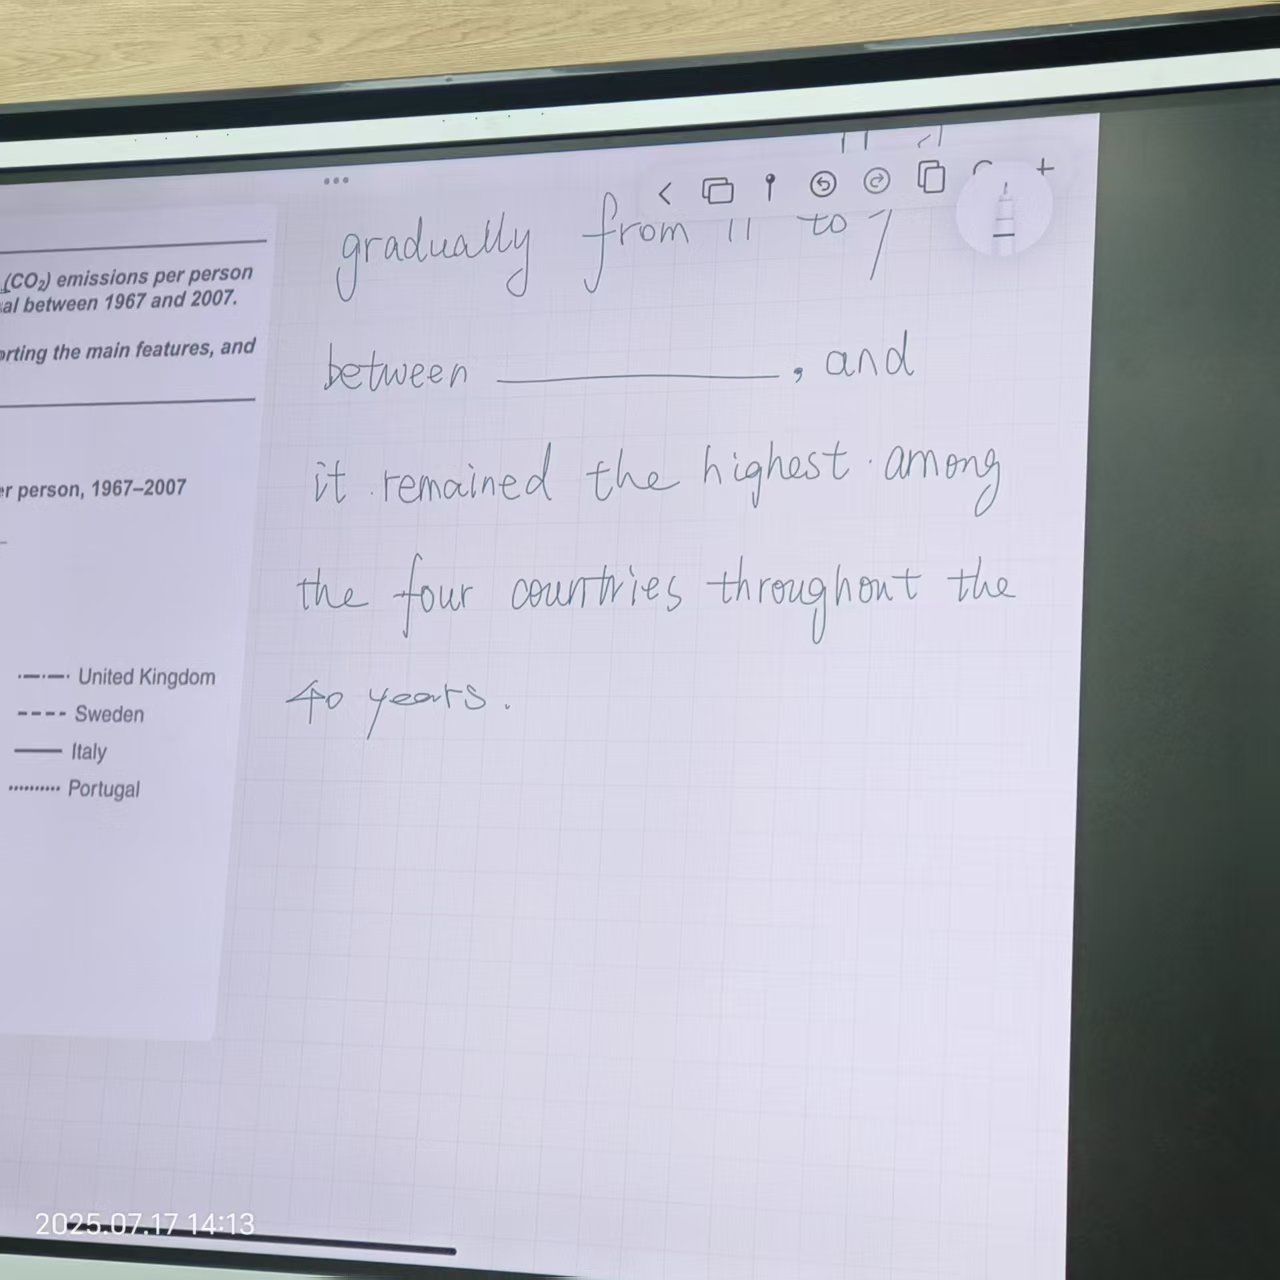 (CO₂) emissions per person
al between 1967 and 2007.
orting the main features, and
er person, 1967–2007
United Kingdom
Sweden
Italy
Portugal
gradually from 11 to
between __________, and
it remained the highest among
the four countries throughout the
40 years.
2025.07.17 14:13